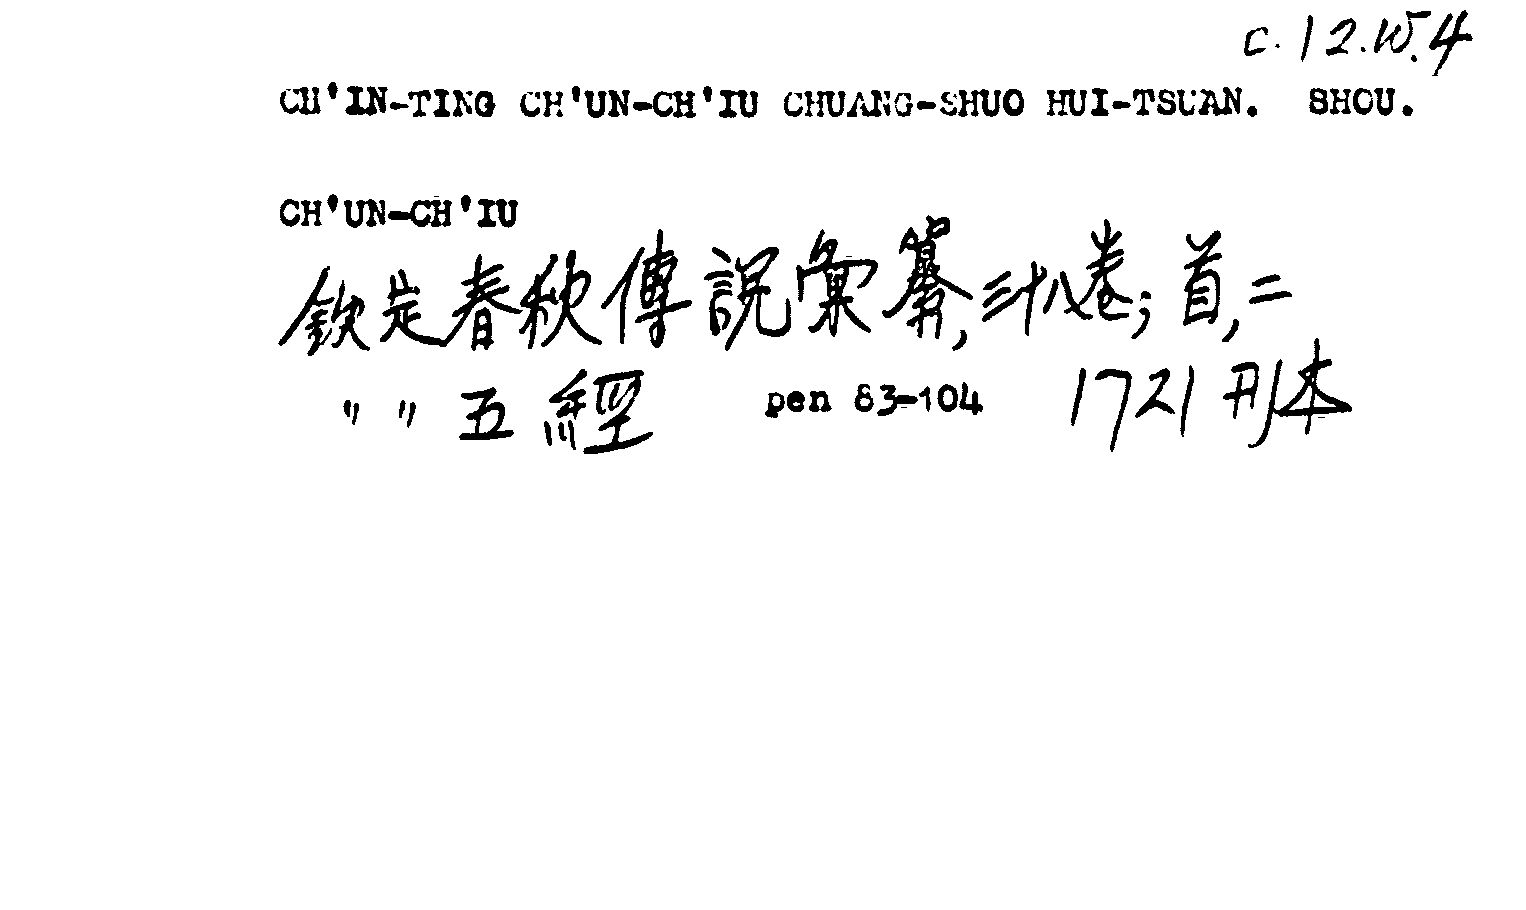 c.12.w.4
CH'IN-TING CH'UN-CH'IU CHUANG-SHUO HUI-TSUAN. SHOU.
CH'UN-CH'IU
欽定春秋傳説彙纂,三十八卷; 首,二
" " 五經 pen 83-104 1721 刊本